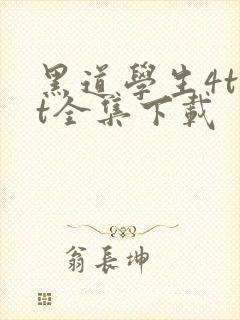 黑道學生4t
t全集下載
翁長坤